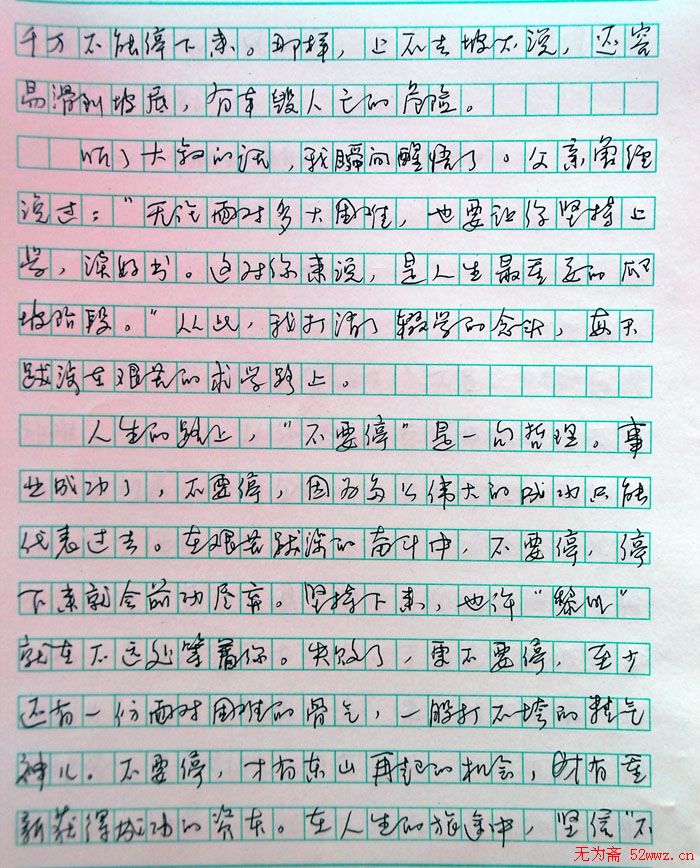 千万不能停下来。那样，上不去坡不说，还容
易滑到坡底，有车毁人亡的危险。
听了大叔的话，我瞬间醒悟了。父亲曾经
说过：“无论面对多大困难，也要让你坚持上
学，读好书。这对你来说，是人生最重要的爬
坡阶段。”从此，我打消了辍学的念头，每天
跋涉在艰苦的求学路上。
人生的路上，“不要停”是一句哲理。事
业成功了，不要停，因为多么伟大的成功只能
代表过去。在艰苦跋涉的奋斗中，不要停，停
下来就会前功尽弃。坚持下来，也许“黎明”
就在不远处等着你。失败了，更不要停，至少
还有一份面对困难的骨气，一股打不垮的精气
神儿。不要停，才有东山再起的机会，才有重
新获得成功的资本。在人生的旅途中，坚信“不
无为斋 52wwz.cn